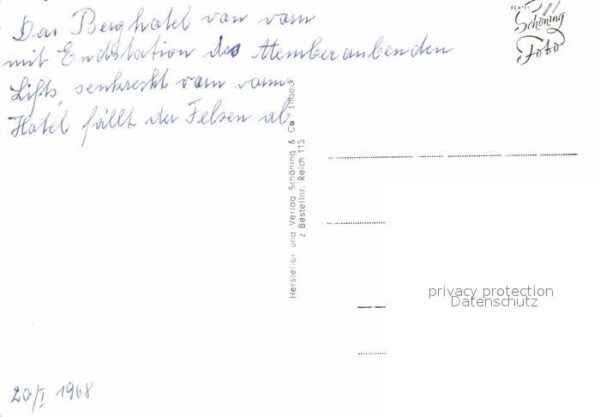 Das Berghotel von vorn
mit Endstation des Atemberaubenden
Lifts, senkrecht vorm vorm
Hotel fällt der Felsen ab
Schöning
Foto
Hersteller und Verlag Schöning & Co Lübeck
z Bestellnr. Reich 115
privacy protection
Datenschutz
20/I 1968